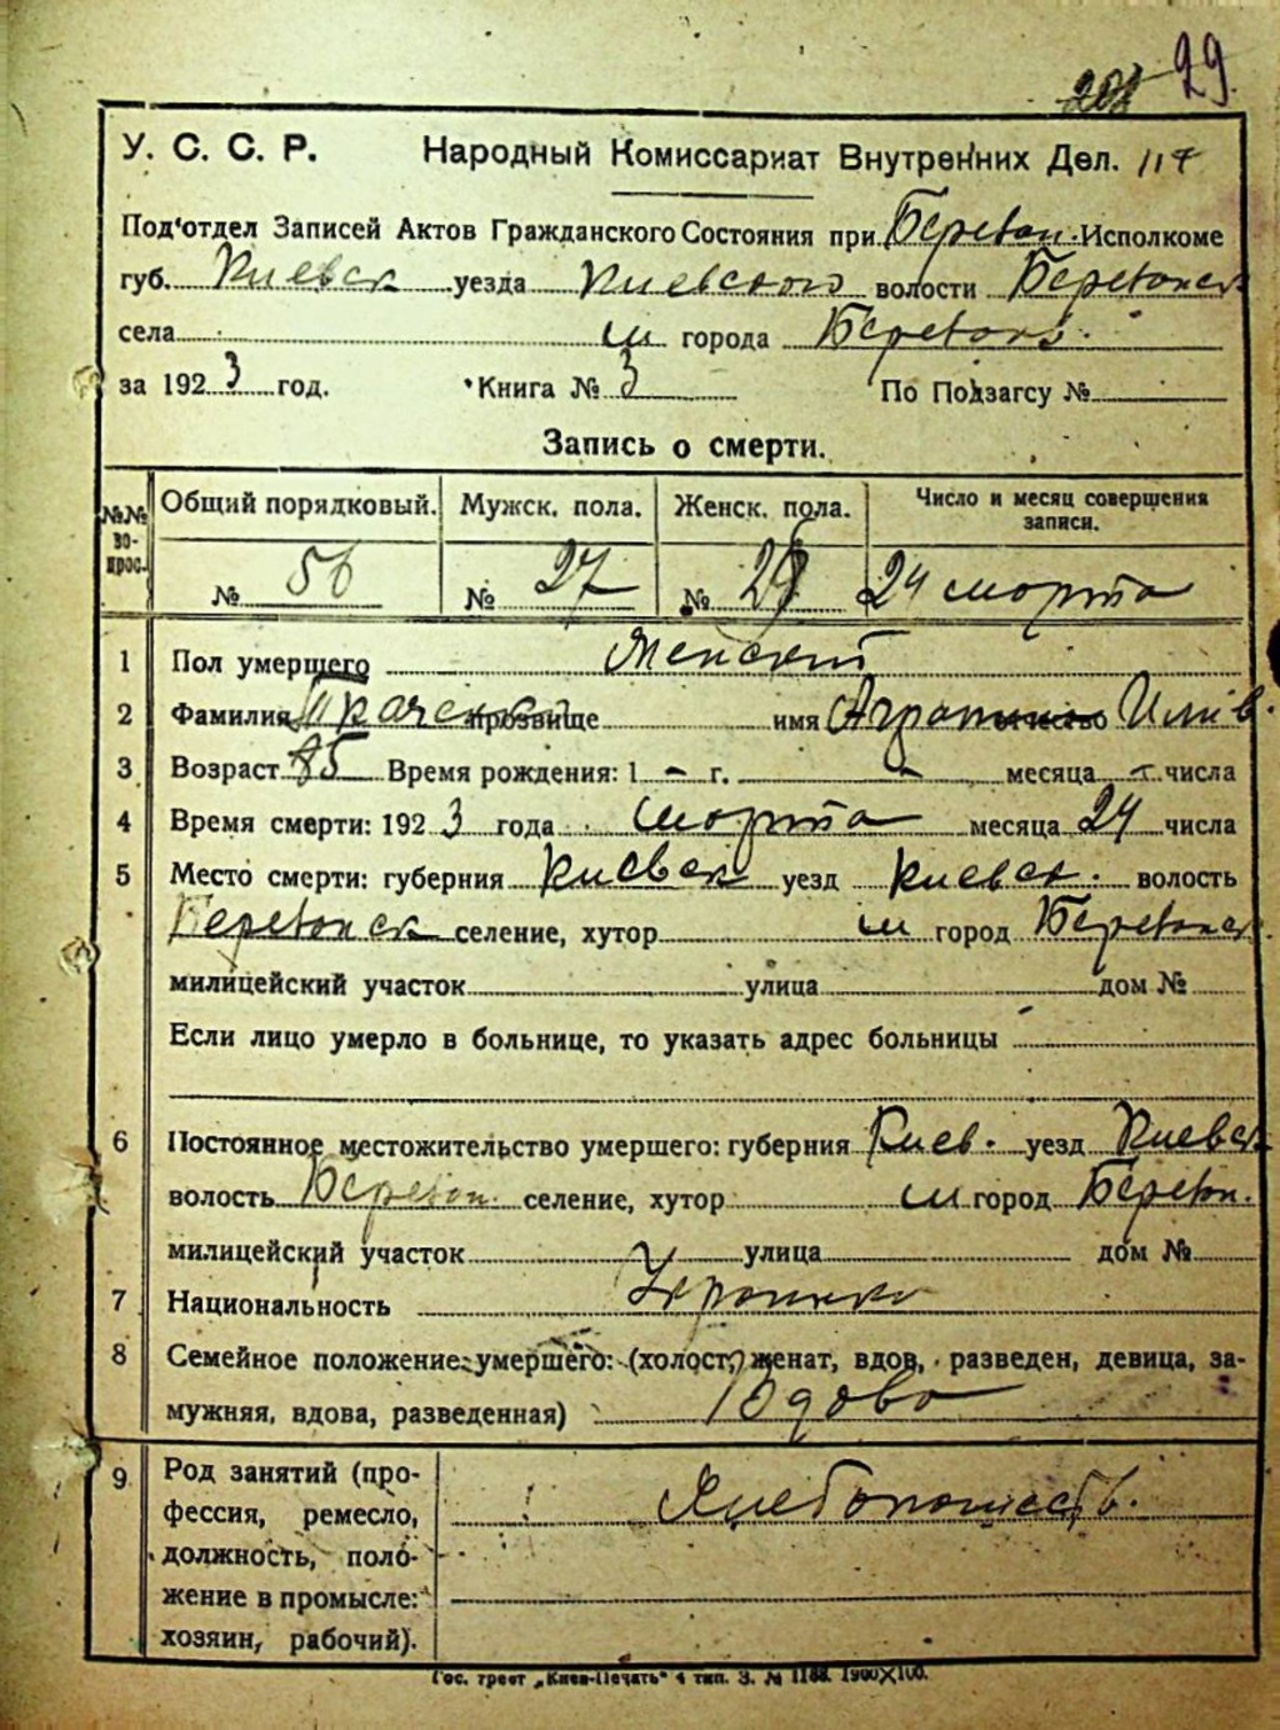 29
У. С. С. Р. Народный Комиссариат Внутренних Дел. 117
Под'отдел Записей Актов Гражданского Состояния при Исполкоме
губ. Киевск уезда Киевского волости
села м города
за 1923 год. Книга № 3 По Подзагсу №
Запись о смерти.
№№ вопрос. Общий порядковый. Мужск. пола. Женск. пола. Число и месяц совершения записи.
№ 56 № 27 № 29 24 марта
1 Пол умершего Женский
2 Фамилия прозвище имя отчество
3 Возраст 85 Время рождения: 1 - г. - месяца - числа
4 Время смерти: 1923 года марта месяца 24 числа
5 Место смерти: губерния Киевск уезд Киевск. волость
селение, хутор м город
милицейский участок улица дом №
Если лицо умерло в больнице, то указать адрес больницы
6 Постоянное местожительство умершего: губерния Киев. уезд Киевск
волость селение, хутор м город
милицейский участок улица дом №
7 Национальность
8 Семейное положение умершего: (холост, женат, вдов, разведен, девица, за-
мужняя, вдова, разведенная) Вдова
9 Род занятий (про-
фессия, ремесло,
должность, поло-
жение в промысле:
хозяин, рабочий).
Гос. трест „Киев-Печать" 4 тип. З. № 1188. 1900×100.